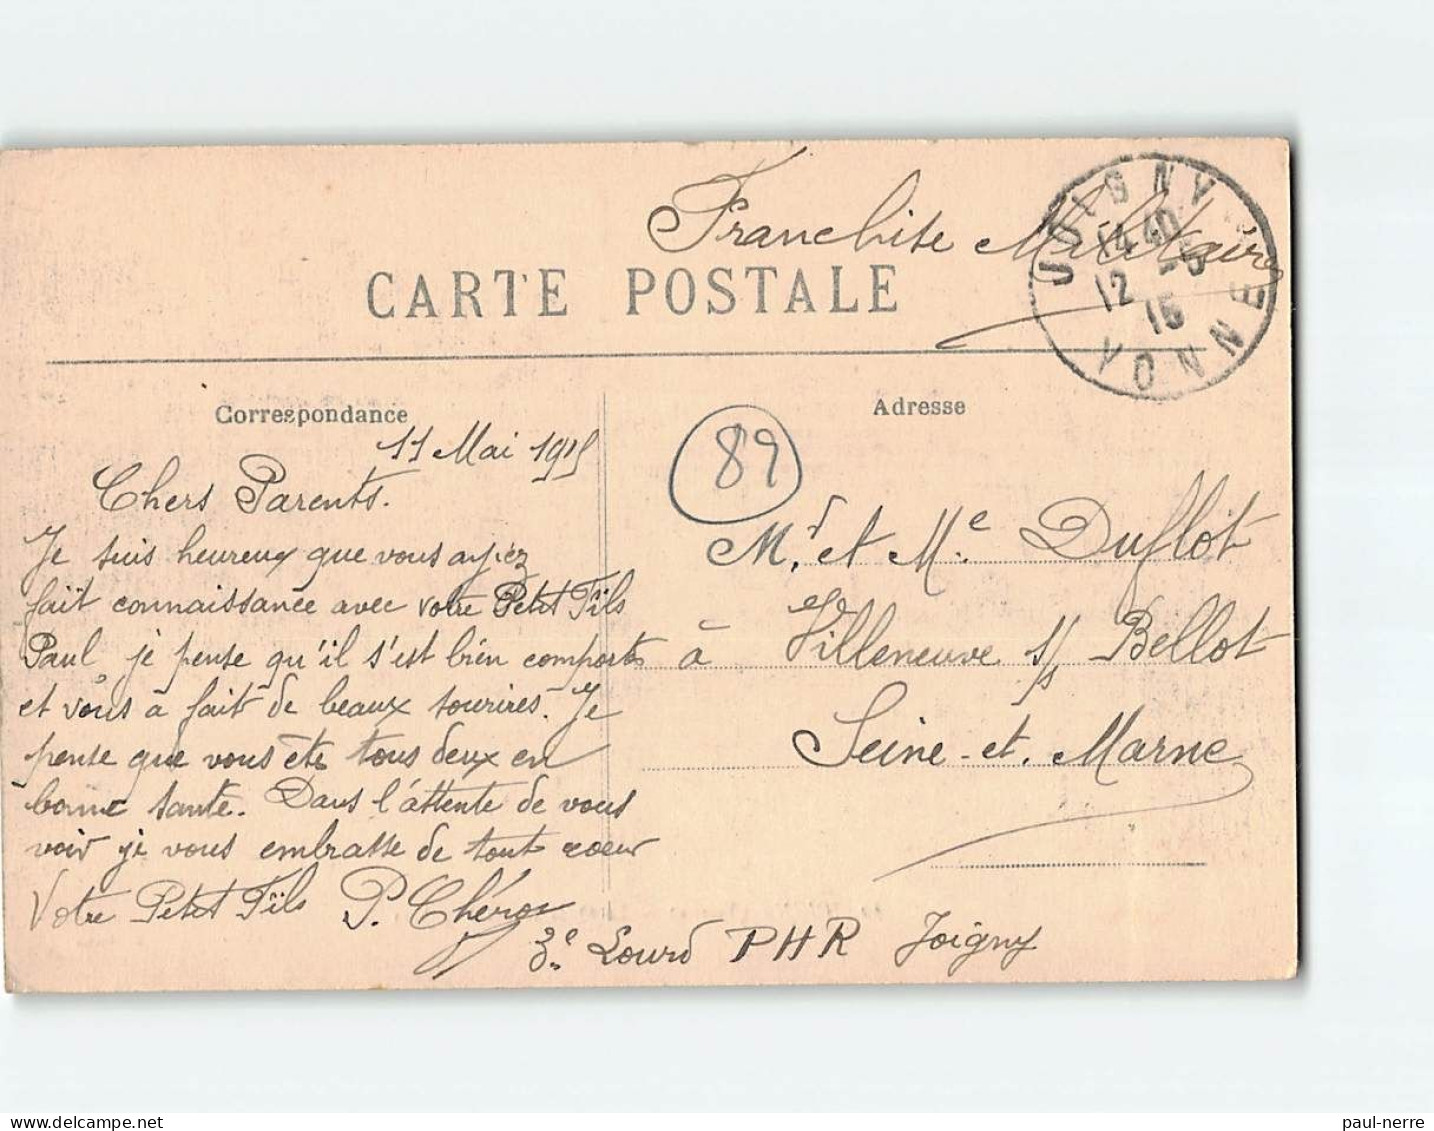 Franchise Militaire
JOIGNY
14 40
12 -5
15
YONNE
CARTE POSTALE
Correspondance
Adresse
11 Mai 1915
89
Chers Parents.
Je suis heureux que vous ayiez
fait connaissance avec votre Petit Fils
Paul, je pense qu'il s'est bien comporté
et vous a fait de beaux sourires. Je
pense que vous êtes tous deux en
bonne santé. Dans l'attente de vous
voir je vous embrasse de tout coeur
Votre Petit Fils P. Chéron
3e Lourd PHR Joigny
Mr. et Me. Duflot
à Villeneuve s/s Bellot
Seine-et-Marne
paul-nerre